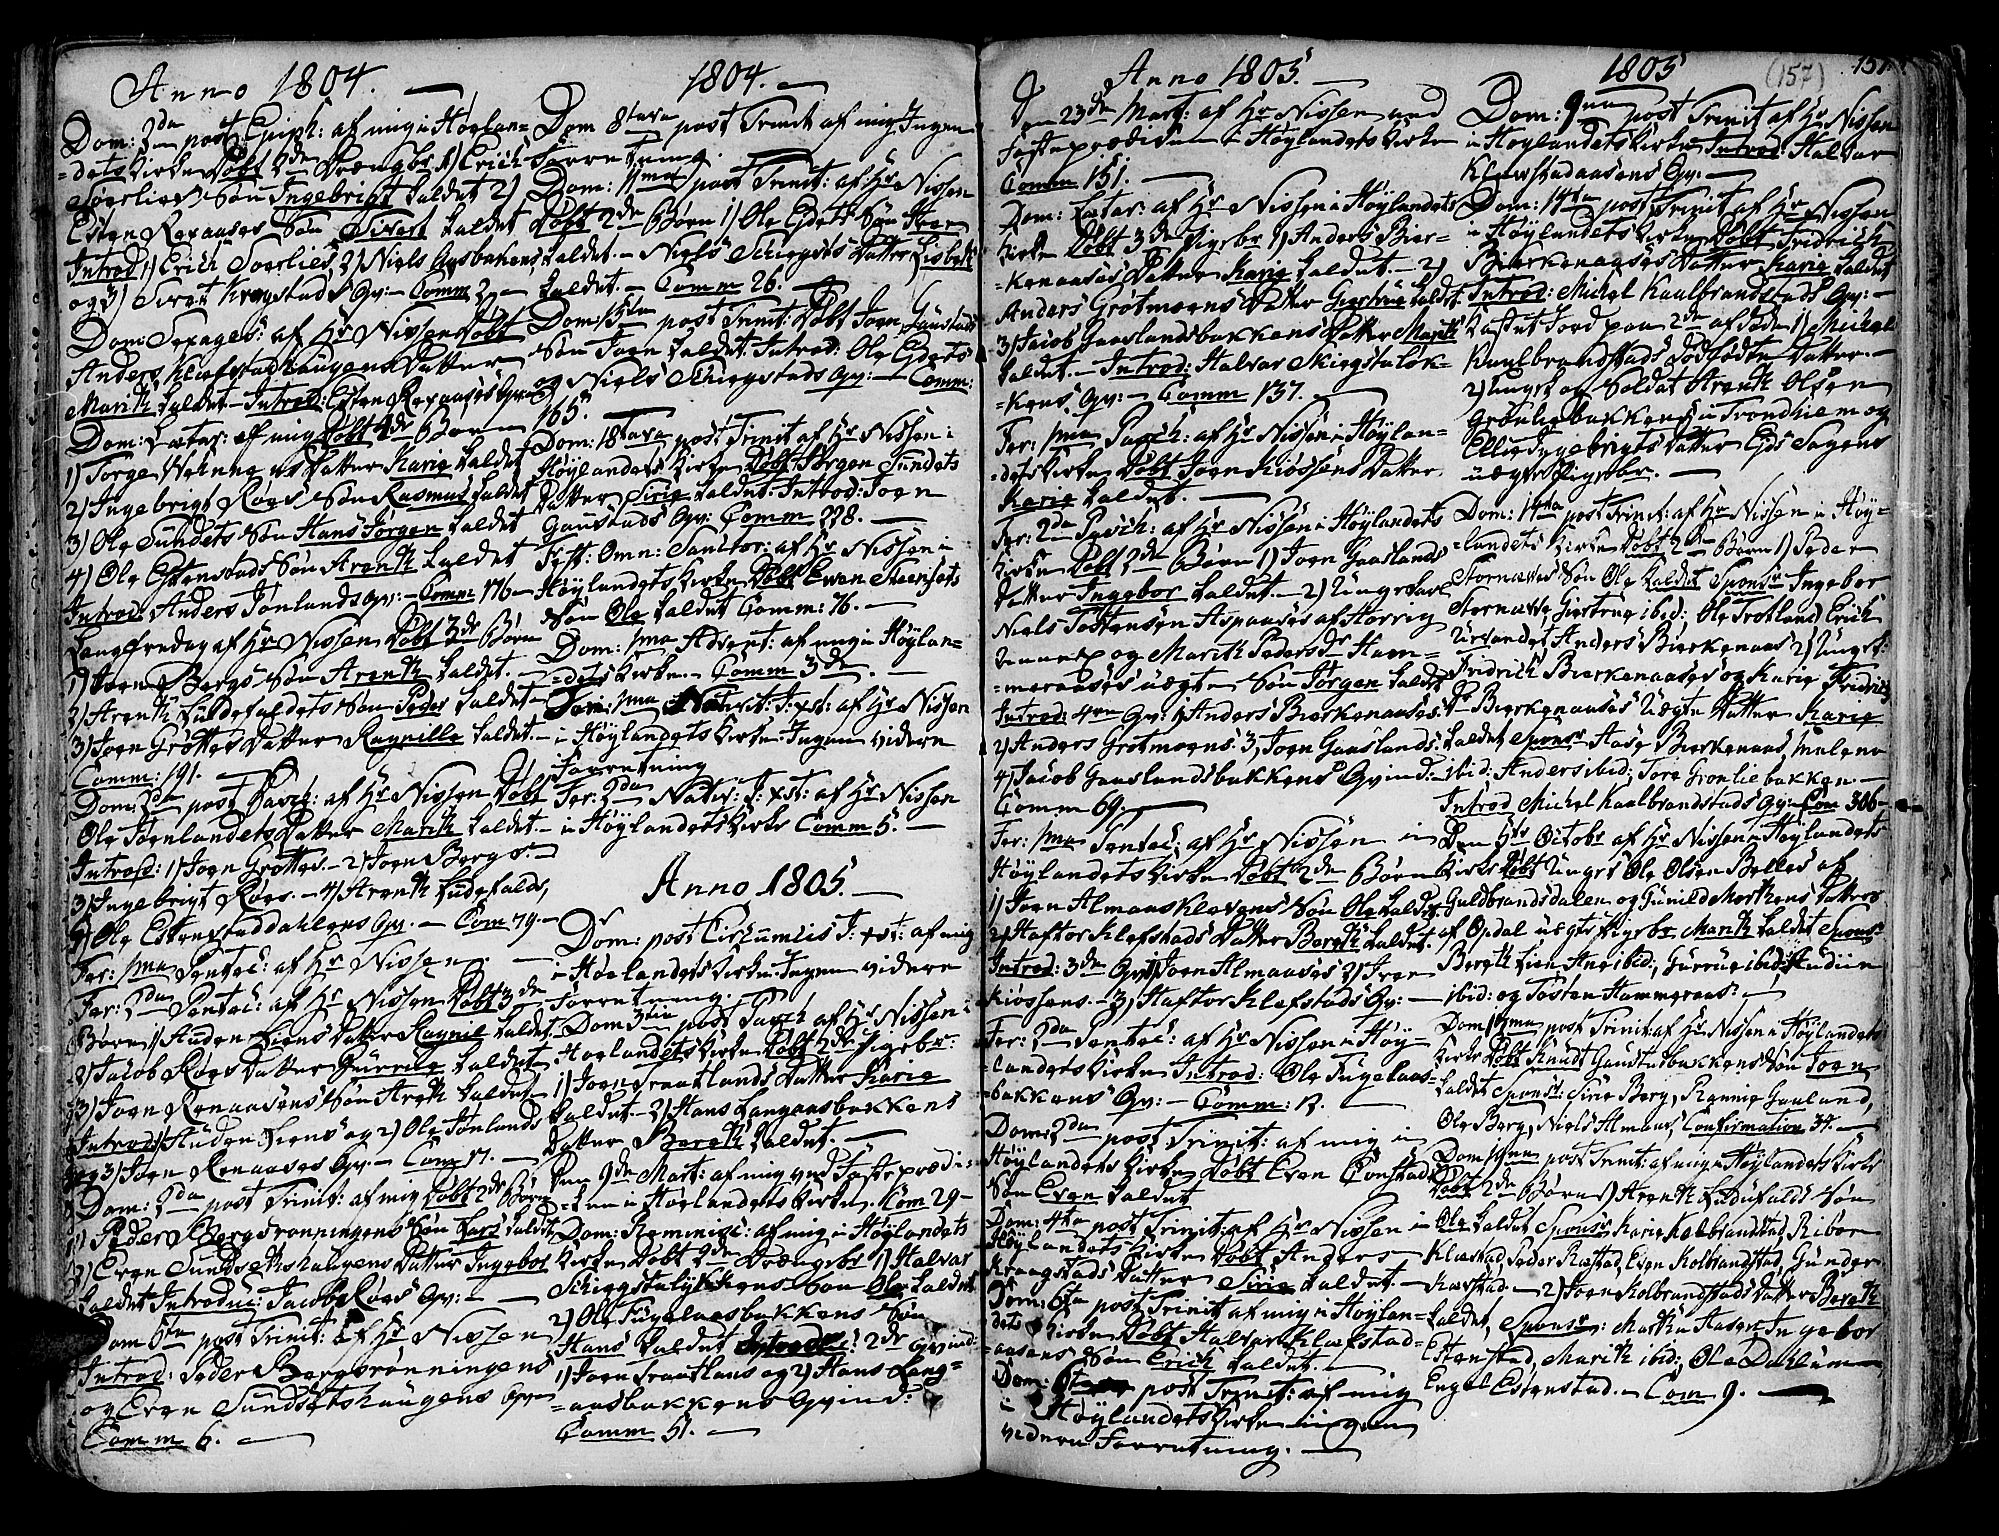 Anno 1804.
Dom: 3da post Epiph: af mig i Höylan=
=dets Kirke Döbt 2de Drengebr. 1) Erich
Soerlies Sön Ingebrigt kaldet 2)
Esten Renaases Sön Sivert kaldet
Introd: 1) Erich Soerlies, 2) Niels Aasbakens
og 3) Sivert Kragstads Qv: – Comm 2.
Dom: Sexages: af Hr Nissen Döbt
Anders Klefstadhaugens Datter
Marith kaldet – Introd: Esten Renaases Qv:
Dom: Lætar: af mig Döbt 4de Börn
1) Torge Datter Karie kaldet
2) Ingebrigt Röes Sön Rasmus kaldet
3) Ole Sundets Sön Hans Jörgen kaldet
4) Ole Estenstads Sön Arenth kaldet
Introd: Anders Jönlands Qv: – Comm 176
Langfredag af Hr Nissen Döbt 3de Börn
1) Joen Bergs Sön Arenth kaldet. –
2) Arenth Lundefaldets Sön Peder kaldet
3) Joen Gröttes Datter Ragnille kaldet. –
Comm: 191.
Dom: 2da post Pasch: af Hr Nissen Döbt
Ole Joenlandets Datter Marith kaldet. –
Introd: 1) Joen Grottes – 2) Joen Bergs. –
3) Ingebrigt Röes. – 4) Arenth Ludefalds,
5) Ole Estenstaddahlens Qv. – Com 79 –
Fer: 1ma Pentec: af Hr Nissen. –
Fer: 2da Pentec: af Hr Nissen Döbt 3de
Börn. 1) Auden Liens Datter Ragnil kaldet
2) Jacob Röes Datter Gurrue kaldet
3) Joen Renaasens Sön Arenth kaldet
Introd: 1) Auden Liens og 2) Ole Jönlands
og 3) Joen Renaases Qv. – Com 17. –
Dom: 2da post Trinit: af mig Döbt 2de Börn
1) Peder Bergsronningens Sön Lars kaldet
2) Even Sundsetshaugens Datter Ingebor
kaldet Introduc: Jacob Röes Qv: –
Dom 5ta post Trinit: af Hr Nissen
Introd: Peder Bergsrönningens
og Even Sundsetshaugens Qv
Comm 6. –
1804. –
Dom 8tava post Trinit af mig Ingen
Forretning.
Dom: 11ma post Trinit: af Hr Nissen
Döbt 2de Börn 1) Ole Eidets Sön Iver
kaldet. – Niels Schiegstds Datter Lisbeth
kaldet. – Comm 26. –
Dom: 15ta post Trinit: Döbt Joen Gaustads
Sön Joen kaldet. Introd: Ole Eidets
og Niels Schiegstads Qv: – Comm:
165.
Dom: 18tava post Trinit af Hr Nissen i
Höylandets Kirke Döbt Jörgen Sundets
Datter Sirie kaldet. Introd: Joen
Gaustads Qv: Comm 228. –
Fest: Omn: Sanctor: af Hr Nissen i
Höylandets Kirke Döbt Even Steensets
Sön Ole kaldet Comm: 76. –
Dom: 1ma Advent: af mig i Höylan=
=dets Kirke. – Comm 3de. –
Feri: 1ma Nativit: J: xst: af Hr Nissen
i Höylandets Kirke. Ingen videre
Forretning
Fer: 2da Nativ: J: xst: af Hr Nissen
i Höylandets Kirke Comm 5. –
Anno 1805. –
Dom: post Circumcis J: xst: af mig
i Höelandets Kirke. Ingen videre
Forretning.
Dom 3tia post Pasch af Hr Nissen i
Höelandets Kirke Döbt 2de Pigebr:
1) Joen Fraatlands Datter Karie
kaldet. – 2) Hans Langaasbakkens
Datter Bereth kaldet. –
Den 9de Mart: af mig ved Fasteprædi=
=ken i Höelandets Kirke. Com 29 –
Dom: Reminisc: af mig i Höylandets
Kirke Döbt 2de Drengebr 1) Halvar
Schiegstalykkens Sön Ole kaldet
2) Ole Fugelaasbakkens Sön
Hans kaldet Introduc: 2de Qvind:
1) Joen Fraatlans og 2) Hans Lang=
=aasbakkens Qvind:
Comm 51. –
Anno 1805. –
Den 23de Mart: af Hr Nissen ved
Fasteprædiken i Höylandets Kirke
Comm 151. –
Dom: Lætar: af Hr Nissen i Höylandets
Kirke Döbt 3de Pigebr 1) Anders Bier=
=kenaases Datter Karie kaldet. – 2)
Anders Grötmoens Datter Giertrue kaldet
3) Jacob Gaaslandsbakkens Datter Marith
kaldet. – Introd: Halvar Skiegstalök=
=kens Qv: – Comm 137. –
Fer: 1ma Pasch: af Hr Nissen i Höylan=
=dets Kirke Döbt Joen Kiössens Datter
Karie kaldet. –
Fer: 2da Pasch: af Hr Nissen i Höylandets
Kirke Döbt 2de Börn 1) Joen Gaaslands
Datter Ingebor kaldet. – 2) Ungkarl
Niels Tostensen Aspaases af Horrig
og Marith Pedersdr Ham=
=meraases uægte Sön Jörgen kaldet
Introd: 4re Qv: 1) Anders Bierkenaases.
2) Anders Grotmoens. 3) Joen Gaaslands.
4) Jacob Gaaslandsbakkens Qvind: –
Comm 69. –
Fer: 1ma Pentec: af Hr Nissen in
Höylandets Kirke Döbt 2de Börn
1) Joen Almaasklevens Sön Ole kaldet.
2) Haftor Klefstads Datter Bereth kaldet.
Introd: 3de Qv: 1) Joen Almaases 2) Iver
Kiössens. – 3) Haftor Klefstads Qv: –
Fer: 2da Pentec: af Hr Nissen i Höy=
=landets Kirke Introd: Ole Fugelaas=
=bakkens Qv: – Comm: 12. –
Dom: 2da post Trinit: af mig in
Höylandets Kirke Döbt Even Eonstads
Sön Even kaldet
Dom: 4ta post Trinit: af Hr Nissen in
Höylandets Kirke Döbt Anders
Kraagstads Datter Sirie kaldet. –
Dom: 6ta post Trinit af mig i Höylan=
dets Kirke Döbt Halvar Klæfstad=
=aasens Sön Erich kaldet. –
Dom: post Trinit: af mig
i Höylandets Kirke ingen
videre Forretning. –
1805
(157)
157.
Dom: 9na post Trinit af Hr Nissen
i Höylandets Kirke Introd: Halvar
Klæfstadaasens Qv. –
Dom: 14ta post Trinit af Hr Nissen
i Höylandets Kirke Döbt Fredrich
Bierkenaases Datter Karie kaldet
Introd: Michel Kaalbrandstads Qv: –
Kastet Jord paa 2de af Döde 1) Michel
Kaalbrandstads Dödfödte Datter. –
2) Ungk og Soldat Arent Olsen
Grönliebakkens i Trondhiem og
Ellie Ingebrigts Datter Eids Sagens
uægte Pigebr. –
Dom: 14ta post Trinit: af Hr Nissen i Höy=
=landets Kirke Döbt 2de Börn 1) Peder
Stornæsses Sön Ole kaldet Spons: Ingebor
Stornæsse, Giertrue ibid: Ole Trotland, Erich
Urvandet, Anders Bierkenaas 2) Ungk:
Fridrich Bierkenaases og Karie Fridrich
Dr Bierkenaases Uægte Datter Karie
kaldet Sponsr Aase Bierkenaas, Malena
ibid: Anders ibid: Tore Grönliebakken. –
Introd Michel Kaalbrandstads Qv: Com 306 –
Den 5te Octobr af Hr Nissen i Höylandets
Kirke Döbt Ungk Ole Olsen Belles af
Guldbrandsdalen og Gunild Morthens Datters
af Opdal uægte Pigebr Marith kaldet Spons:
Bereth Lien Ane ibid:, Gurrue ibid: Audun
ibid: og Tosten Hammeraas. –
Dom: post Trinit: af Hr Nissen i Höylandets
Kirke Döbt Knudt Gaustadbakkens Sön Joen
kaldet Sponsr: Berg, Rannie Gaaland,
Ole Berg, Niels Almaas, Confirmation 34. –
Dom 19na post Trinit: af mig i Höylandets Kirke
Döbt 2de Börn 1) Arenth Ludufalds Sön
Ole kaldet Sponsr Karie Kolbrandstad, Ribor
Klæstad, Peder Ræstad, Even Kolbrandstad, Gunder
Ræstad. – 2) Joen Kolbrandstads Datter Bereth
kaldet, Sponsr: Marith Aaser, Ingebor
Estenstad, Marith ibid:, Ole Dahlum
Engel Estenstad. – Com 9. –